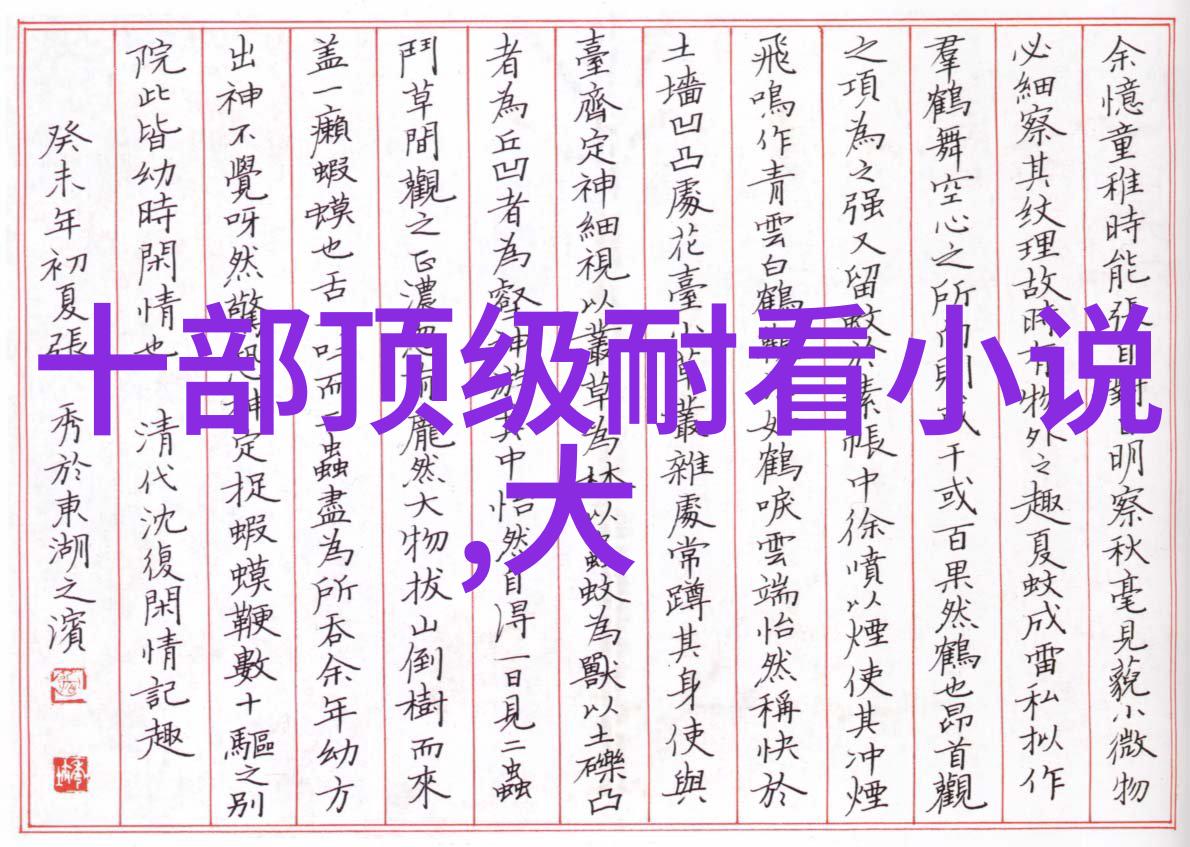 余憶童稚時能張目對日明察秋毫見藐小微物
必細察其纹理故時有物外之趣夏蚊成雷私拟作
羣鶴舞空心之所向則或千或百果然鶴也昂首觀
之項為之强又留蚊於素帳中徐噴以煙使其冲煙
飛鳴作青雲白鶴觀如鶴唳雲端怡然稱快於
土墻凹凸處花臺小草叢雜處常蹲其身使與
臺齊定神細視以叢草為林以蟲蚊為獸以土礫凸
者為丘凹者為壑神遊其中怡然自得一日見二蟲
鬥草間觀之正濃忽有龐然大物拔山倒樹而來
盖一癩蝦蟆也舌一吐而二蟲盡為所吞余年幼方
出神不覺呀然驚恐神定捉蝦蟆鞭數十驅之别
院此皆幼時閑情也 清代沈復閑情記趣
癸未年初夏張 秀於東湖之濱
十部顶级耐看小说
,大